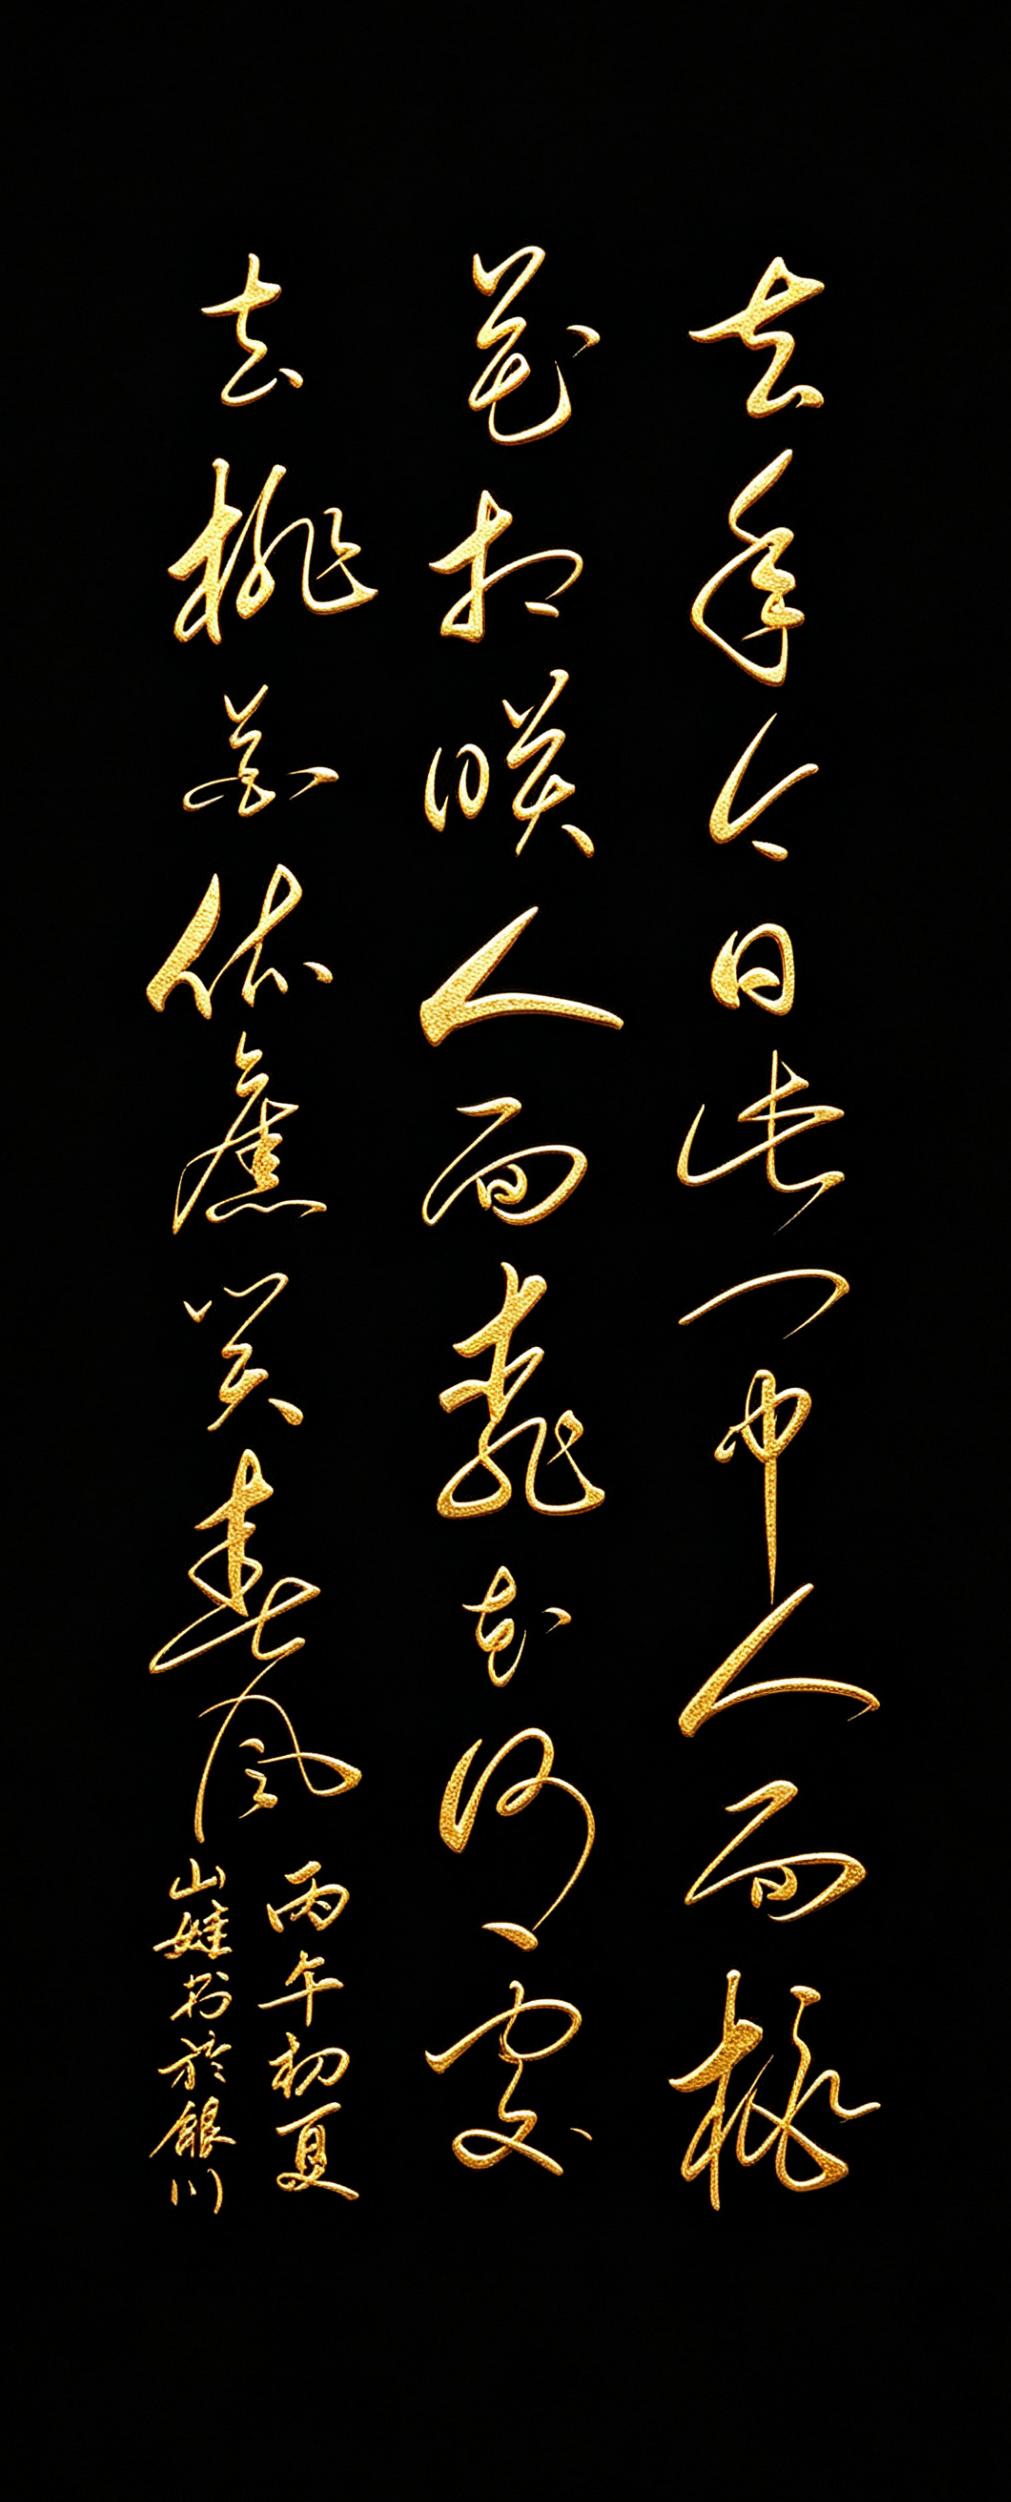 去年今日此門中人面桃
花相映人面何處
去桃花依舊笑春風
丙午初夏
山娃书於銀川